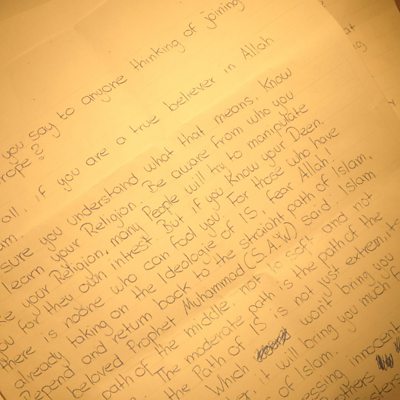 you say to anyone thinking of joining
rope?
all, if you are a true believer in Allah
sure you understand what that means, know
learn your Religion. Be aware from who you
your Religion, many People will try to manipulate
for they own intrest. But if you know your Deen,
there is noone who can fool you! For those who have
already taking on the Ideologie of IS, fear Allah!
Repend and return back to the straight path of Islam,
beloved Prophet Muhammad (S.A.W) said, Islam
path of the middle. not to soft and not
The moderate path is the path of the
the Path of IS is not just extrem, it
Which won't bring you
it will bring you much
of Islam.
innocent